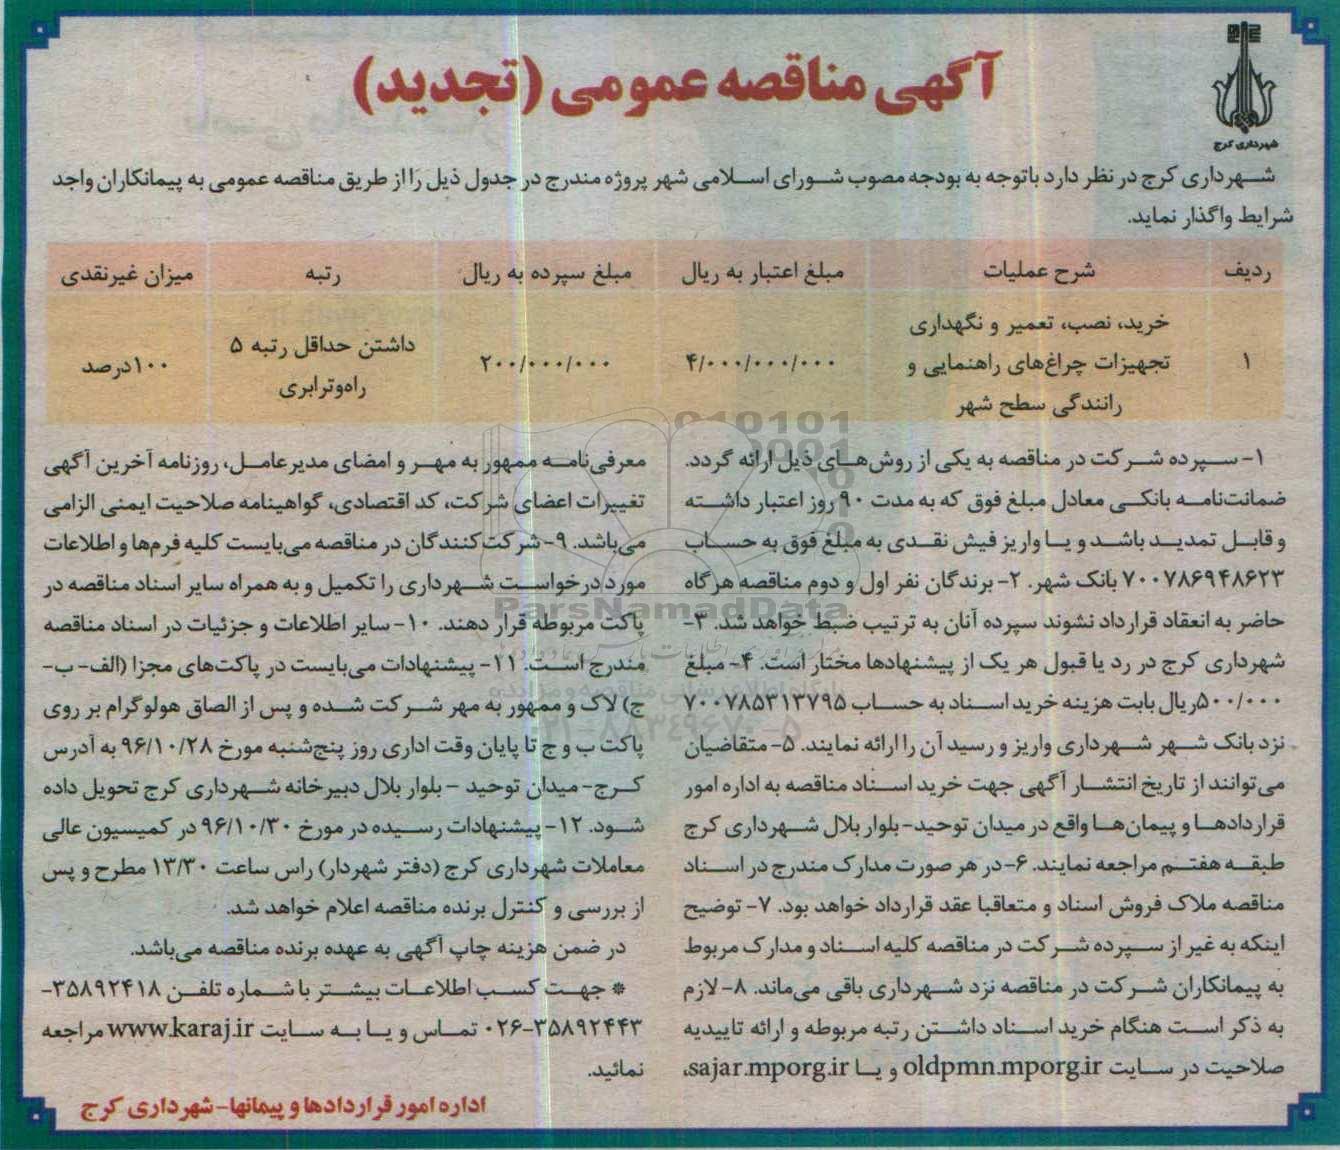 شهرداری کرج
آگهی مناقصه عمومی (تجدید)
شهرداری کرج در نظر دارد باتوجه به بودجه مصوب شورای اسلامی شهر پروژه مندرج در جدول ذیل را از طریق مناقصه عمومی به پیمانکاران واجد
شرایط واگذار نماید.
ردیف شرح عملیات مبلغ اعتبار به ریال مبلغ سپرده به ریال رتبه میزان غیرنقدی
۱ خرید، نصب، تعمیر و نگهداری تجهیزات چراغ‌های راهنمایی و رانندگی سطح شهر ۴/۰۰۰/۰۰۰/۰۰۰ ۲۰۰/۰۰۰/۰۰۰ داشتن حداقل رتبه ۵ راه‌وترابری ۱۰۰درصد
۱- سپرده شرکت در مناقصه به یکی از روش‌های ذیل ارائه گردد.
ضمانت‌نامه بانکی معادل مبلغ فوق که به مدت ۹۰ روز اعتبار داشته
و قابل تمدید باشد و یا واریز فیش نقدی به مبلغ فوق به حساب
۷۰۰۷۸۶۹۴۸۶۲۳ بانک شهر. ۲- برندگان نفر اول و دوم مناقصه هرگاه
حاضر به انعقاد قرارداد نشوند سپرده آنان به ترتیب ضبط خواهد شد. ۳-
شهرداری کرج در رد یا قبول هر یک از پیشنهادها مختار است. ۴- مبلغ
۵۰۰/۰۰۰ریال بابت هزینه خرید اسناد به حساب ۷۰۰۷۸۵۳۱۳۷۹۵
نزد بانک شهر شهرداری واریز و رسید آن را ارائه نمایند. ۵- متقاضیان
می‌توانند از تاریخ انتشار آگهی جهت خرید اسناد مناقصه به اداره امور
قراردادها و پیمان‌ها واقع در میدان توحید- بلوار بلال شهرداری کرج
طبقه هفتم مراجعه نمایند. ۶- در هر صورت مدارک مندرج در اسناد
مناقصه ملاک فروش اسناد و متعاقبا عقد قرارداد خواهد بود. ۷- توضیح
اینکه به غیر از سپرده شرکت در مناقصه کلیه اسناد و مدارک مربوط
به پیمانکاران شرکت در مناقصه نزد شهرداری باقی می‌ماند. ۸- لازم
به ذکر است هنگام خرید اسناد داشتن رتبه مربوطه و ارائه تاییدیه
صلاحیت در سایت oldpmn.mporg.ir و یا sajar.mporg.ir،
معرفی‌نامه ممهور به مهر و امضای مدیرعامل، روزنامه آخرین آگهی
تغییرات اعضای شرکت، کد اقتصادی، گواهینامه صلاحیت ایمنی الزامی
می‌باشد. ۹- شرکت‌کنندگان در مناقصه می‌بایست کلیه فرم‌ها و اطلاعات
مورد درخواست شهرداری را تکمیل و به همراه سایر اسناد مناقصه در
پاکت مربوطه قرار دهند. ۱۰- سایر اطلاعات و جزئیات در اسناد مناقصه
مندرج است. ۱۱- پیشنهادات می‌بایست در پاکت‌های مجزا (الف- ب-
ج) لاک و ممهور به مهر شرکت شده و پس از الصاق هولوگرام بر روی
پاکت ب و ج تا پایان وقت اداری روز پنج‌شنبه مورخ ۹۶/۱۰/۲۸ به آدرس
کرج- میدان توحید - بلوار بلال دبیرخانه شهرداری کرج تحویل داده
شود. ۱۲- پیشنهادات رسیده در مورخ ۹۶/۱۰/۳۰ در کمیسیون عالی
معاملات شهرداری کرج (دفتر شهردار) راس ساعت ۱۳/۳۰ مطرح و پس
از بررسی و کنترل برنده مناقصه اعلام خواهد شد.
در ضمن هزینه چاپ آگهی به عهده برنده مناقصه می‌باشد.
* جهت کسب اطلاعات بیشتر با شماره تلفن ۳۵۸۹۲۴۱۸-
۰۲۶-۳۵۸۹۲۴۴۳ تماس و یا به سایت www.karaj.ir مراجعه
نمائید.
اداره امور قراردادها و پیمانها- شهرداری کرج
ParsNamadData